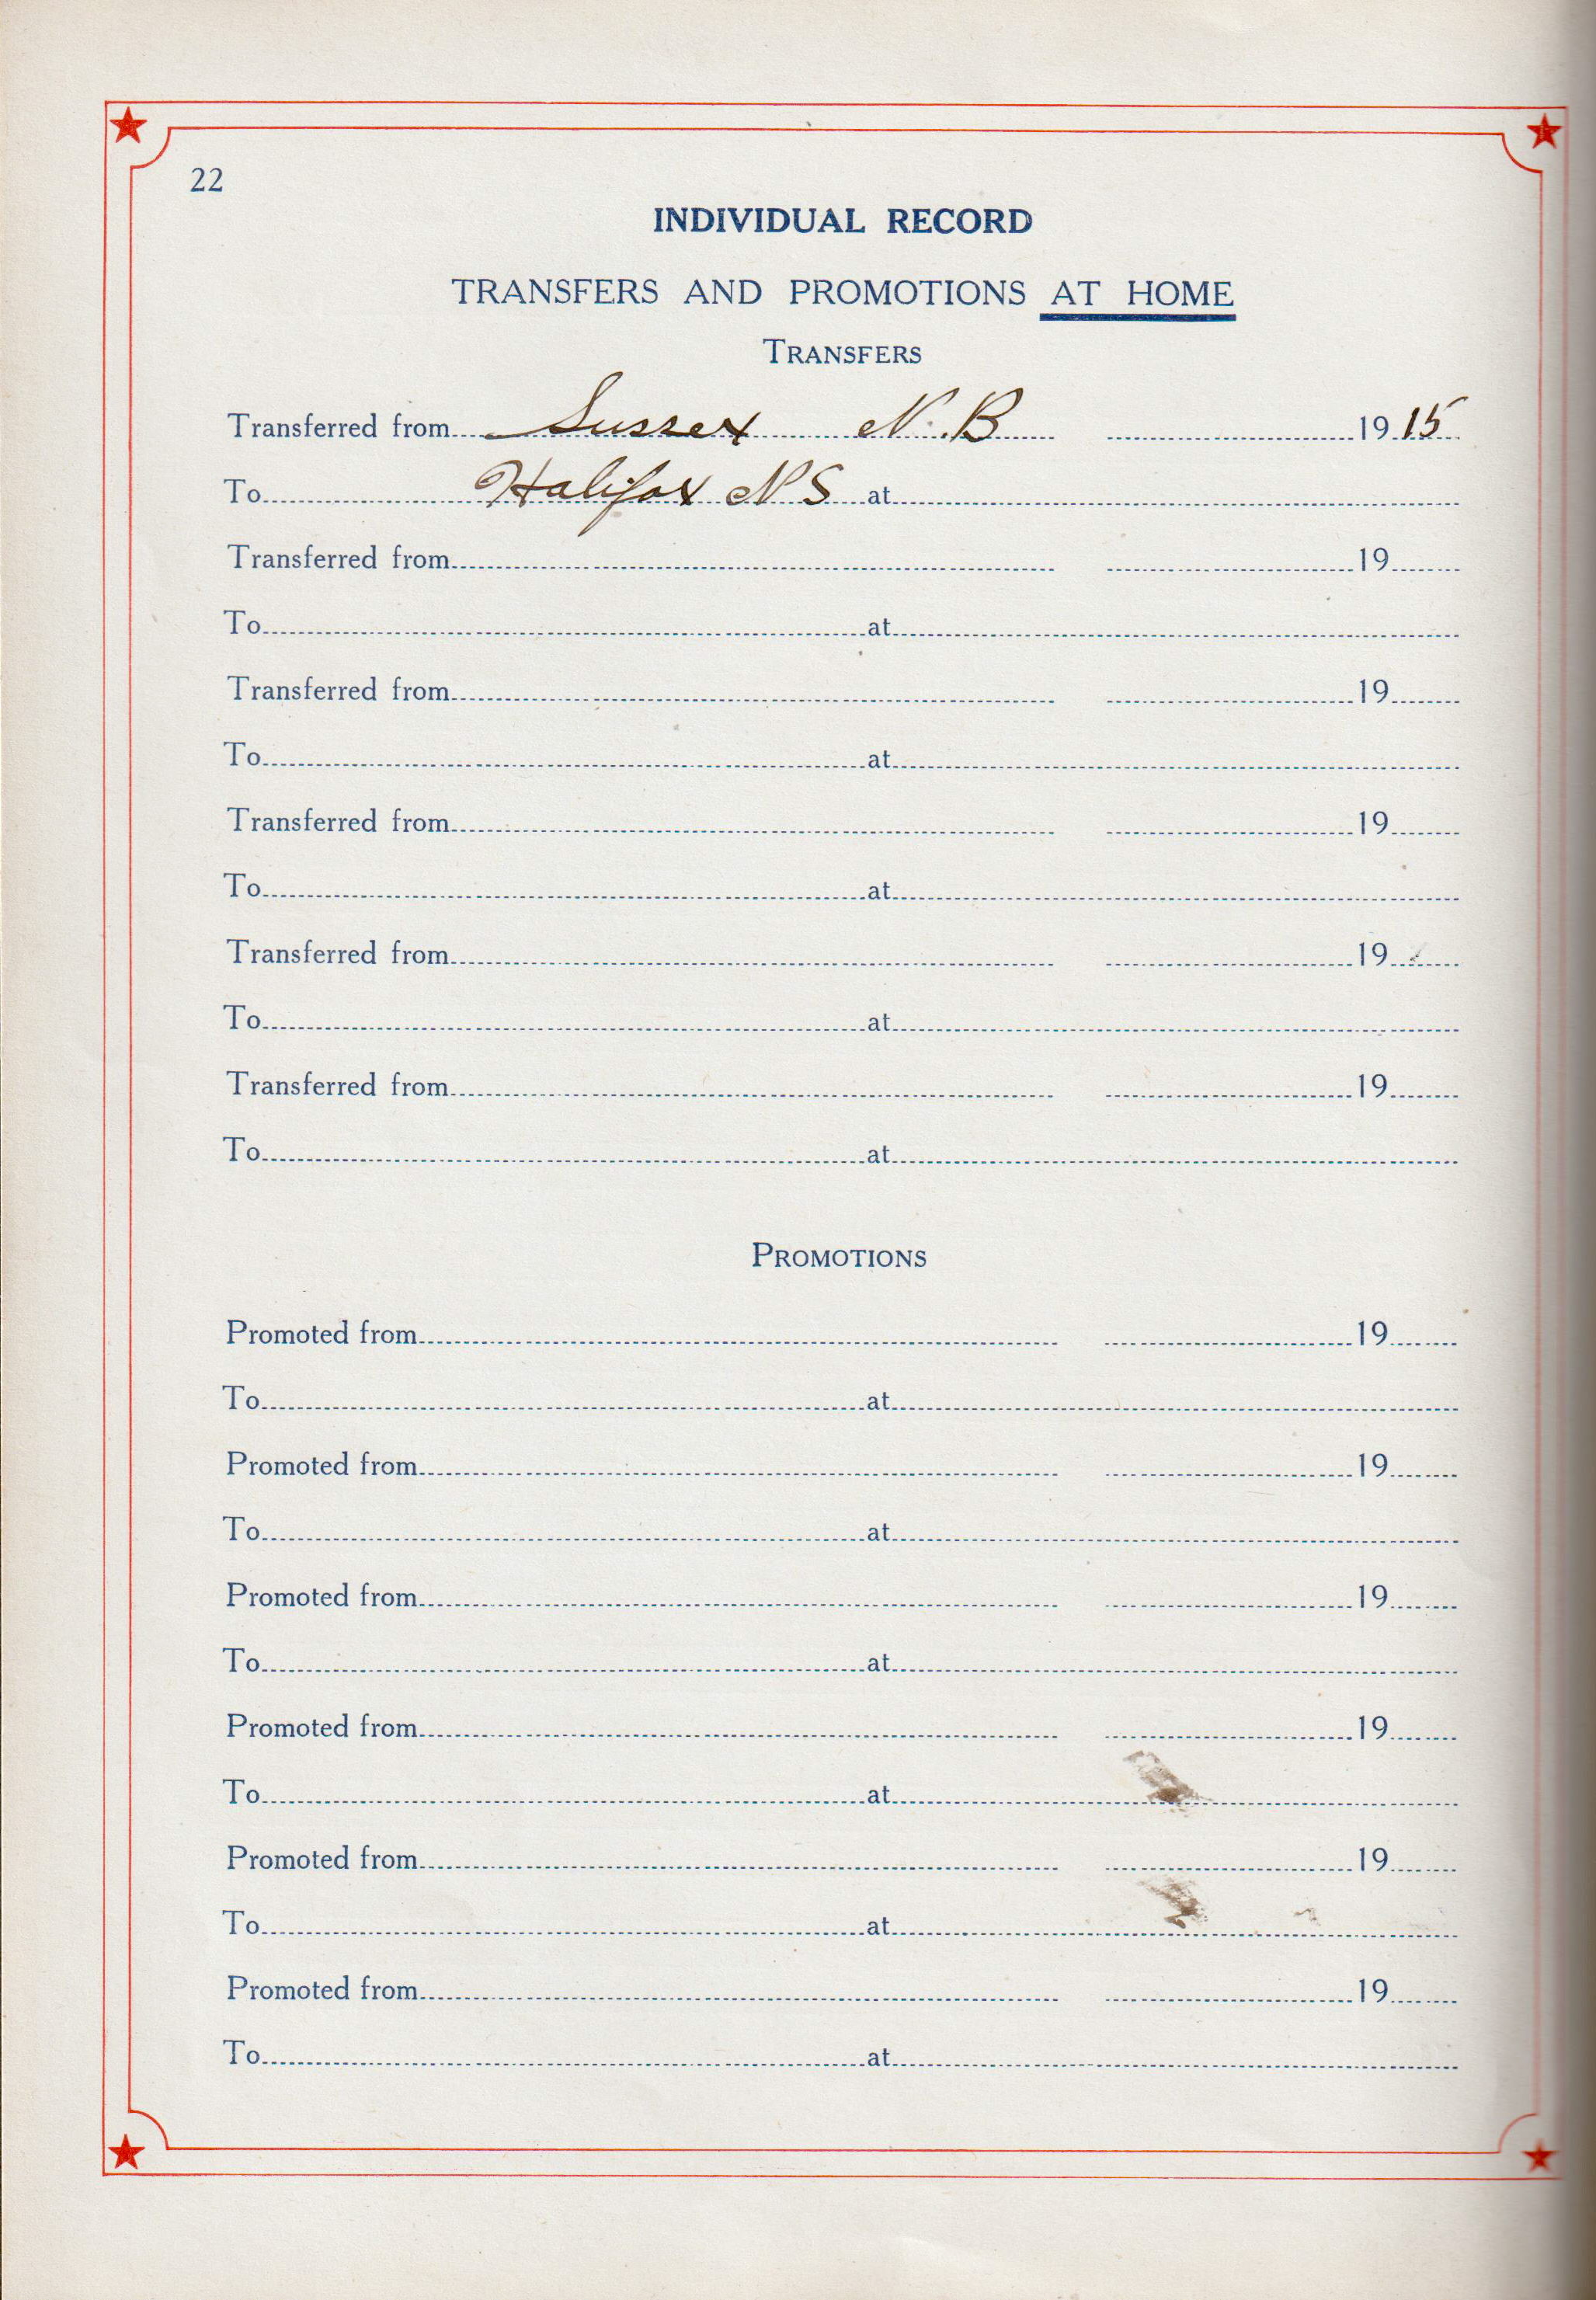 22
INDIVIDUAL RECORD
TRANSFERS AND PROMOTIONS AT HOME
TRANSFERS
Transferred from Sussex N.B 1915
To Halifax N S at
Transferred from 19
To at
Transferred from 19
To at
Transferred from 19
To at
Transferred from 19
To at
Transferred from 19
To at
PROMOTIONS
Promoted from 19
To at
Promoted from 19
To at
Promoted from 19
To at
Promoted from 19
To at
Promoted from 19
To at
Promoted from 19
To at